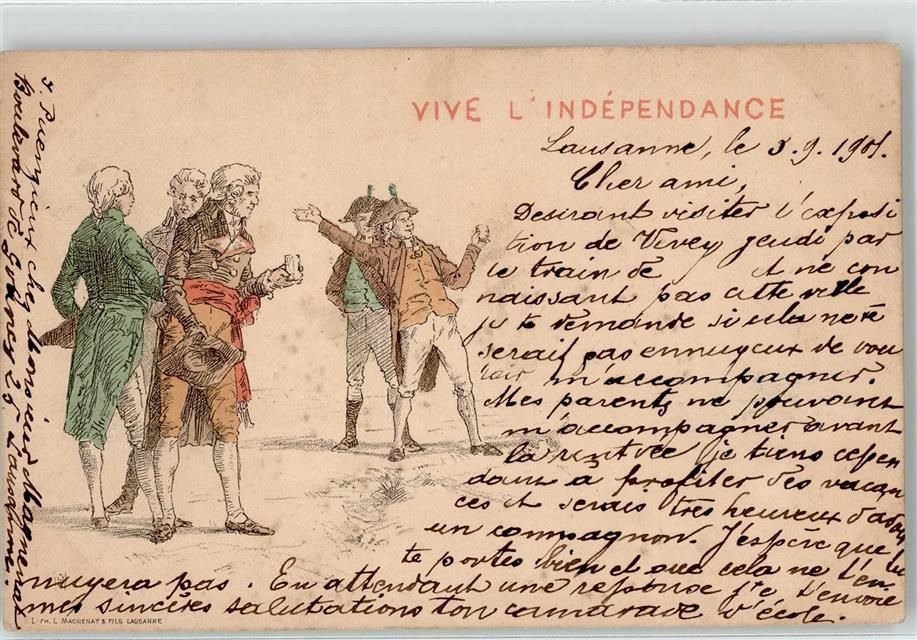 VIVE L'INDÉPENDANCE
Lausanne, le 3.9.1901.
Cher ami,
Desirant visiter l'exposi
tion de Vevey jeudi par
le train de et ne con
naissant pas cette ville
je te demande si cela ne te
serait pas ennuyeux de vou
loir m'accompagner.
Mes parents ne pouvant
m'accompagner avant
la rentrée je tiens cepen
dant a profiter des vacan
ces et serais très heureux d'avoir
un compagnon. J'espère que tu
te portes bien et que cela ne t'en-
nuyera pas. En attendant une reponse je t'envoie
mes sincères salutations ton camarade d'école.
chez monsieur Magnenat
Boulevard de Grancy 25. Lausanne.
LITH. L. MAGNENAT & FILS LAUSANNE